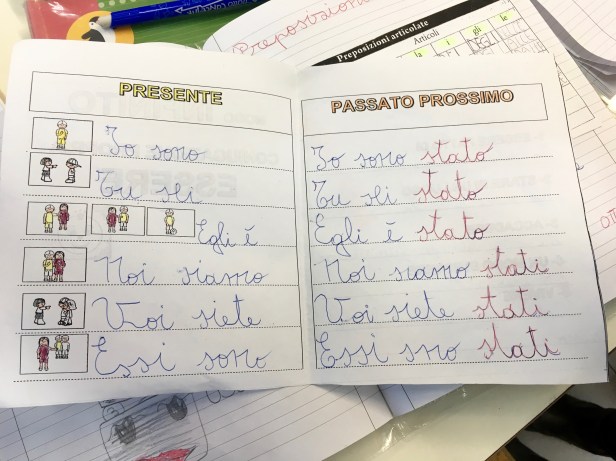 Preposizioni
Preposizioni articolate
Articoli
la
i
gli
le
PRESENTE
Io sono
Tu sei
Egli é
Noi siamo
Voi siete
Essi sono
PASSATO PROSSIMO
Io sono stato
Tu sei stato
Egli é stato
Noi siamo stati
Voi siete stati
Essi sono stati